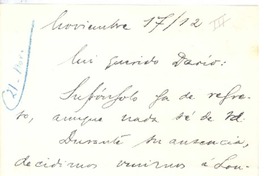 Noviembre 17/12
III
Mi querido Darío:
Supóngolo ya de regre-
so, aunque nada sé de Vd.
Durante su ausencia,
decidimos venirnos á Lon-